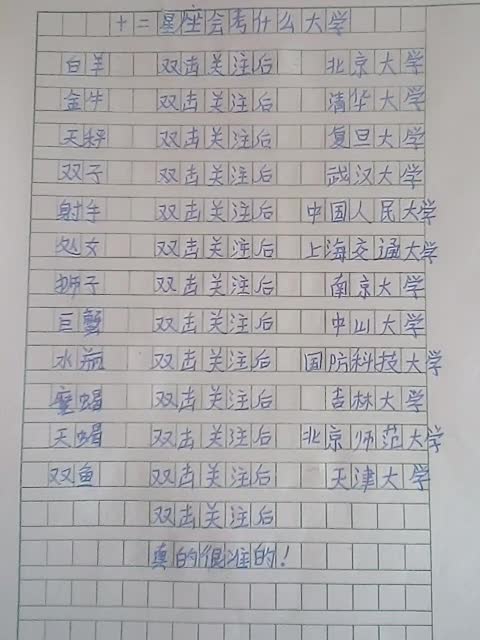 十二星座会考什么大学
白羊 双击关注后 北京大学
金牛 双击关注后 清华大学
天秤 双击关注后 复旦大学
双子 双击关注后 武汉大学
射手 双击关注后 中国人民大学
处女 双击关注后 上海交通大学
狮子 双击关注后 南京大学
巨蟹 双击关注后 中山大学
水瓶 双击关注后 国防科技大学
魔蝎 双击关注后 吉林大学
天蝎 双击关注后 北京师范大学
双鱼 双击关注后 天津大学
双击关注后
真的很准的!